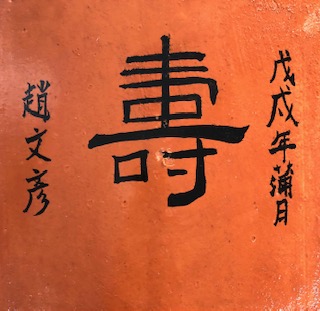 戊戌年蒲月
壽
趙文彥